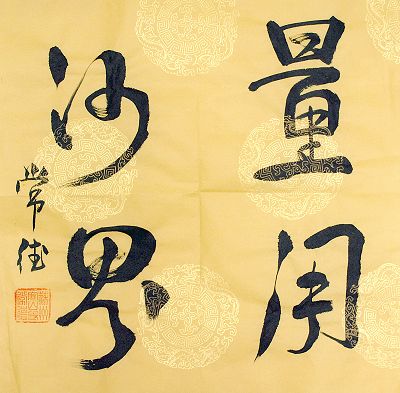 量周
沙界
常